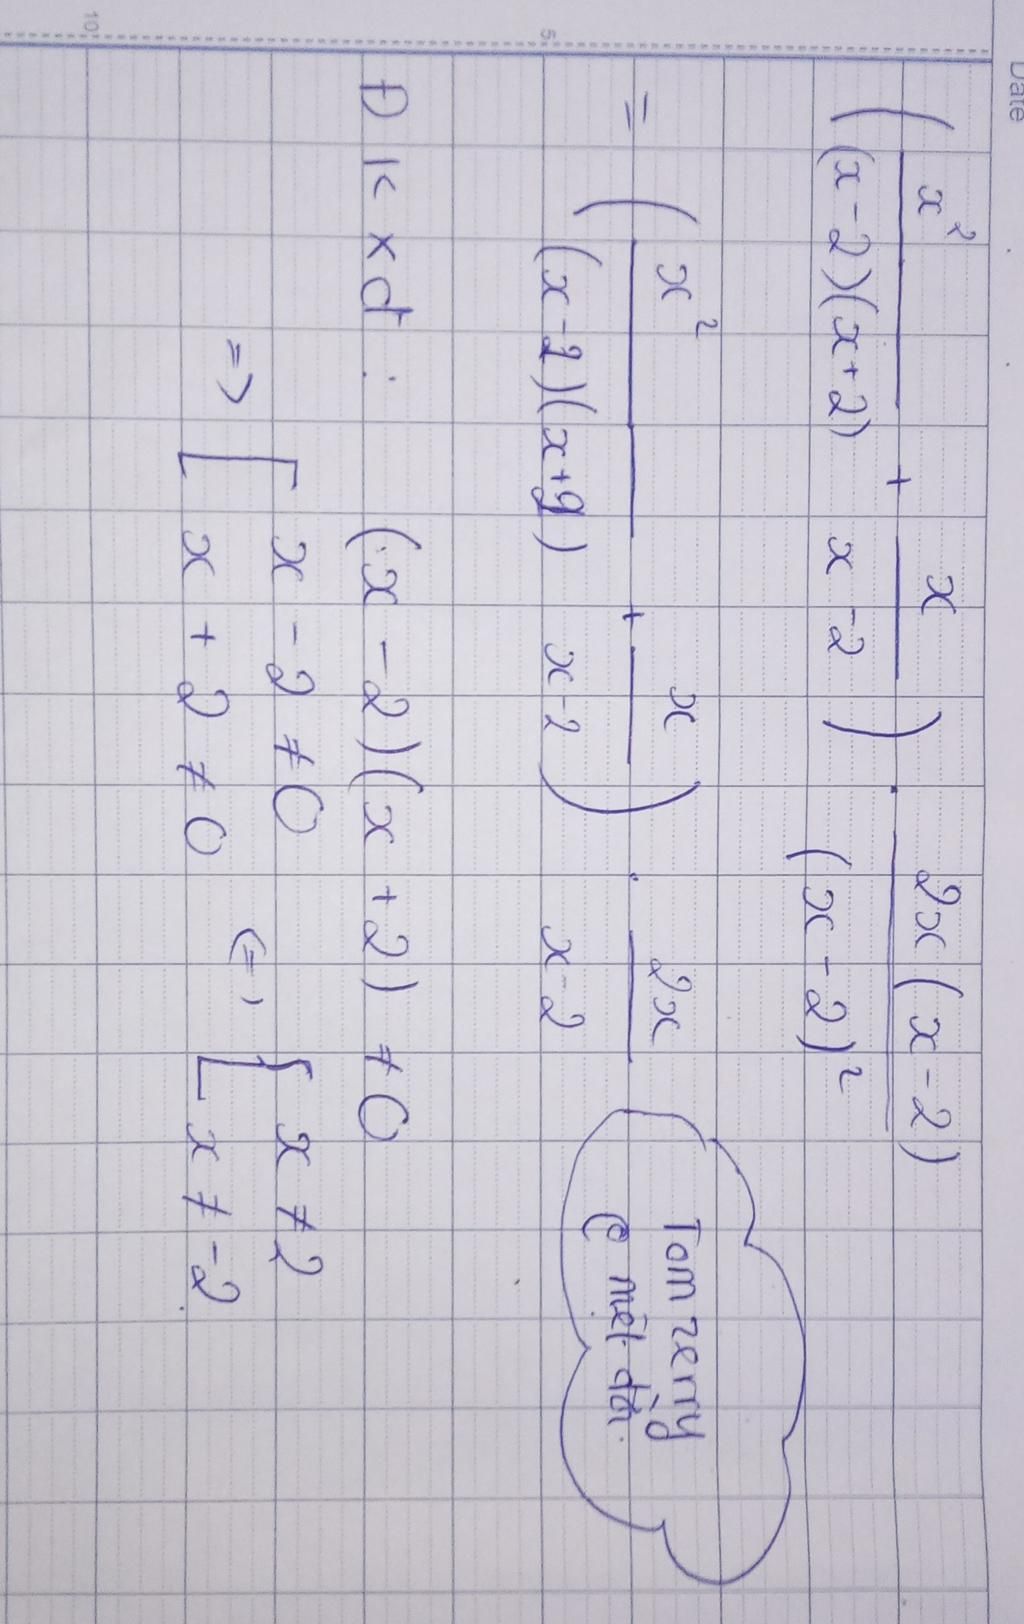 Date
( x² / (x-2)(x+2) + x / x-2 ) . 2x(x-2) / (x-2)²
= ( x² / (x-2)(x+g) + x / x-2 ) . 2x / x-2
Tom zerry
mệt
Đ K x đ : (x-2)(x+2) ≠ 0
=> [ x-2 ≠ 0 (=) { x ≠ 2
[ x+2 ≠ 0 [ x ≠ -2
5
10